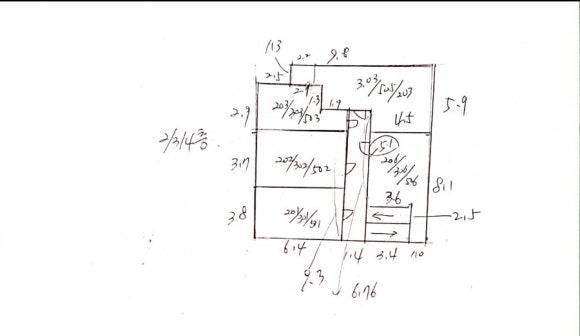 1.3
2.2
9.8
2.5
2.4
1.3
1.9
3.03/505/203
4.5
5.9
2.9
203/303/503
2/3/4층
5.1
3.7
202/302/502
8.1
3.6
2.5
3.8
201/301/501
6.4
1.4
3.4
1.0
9.3
6.76